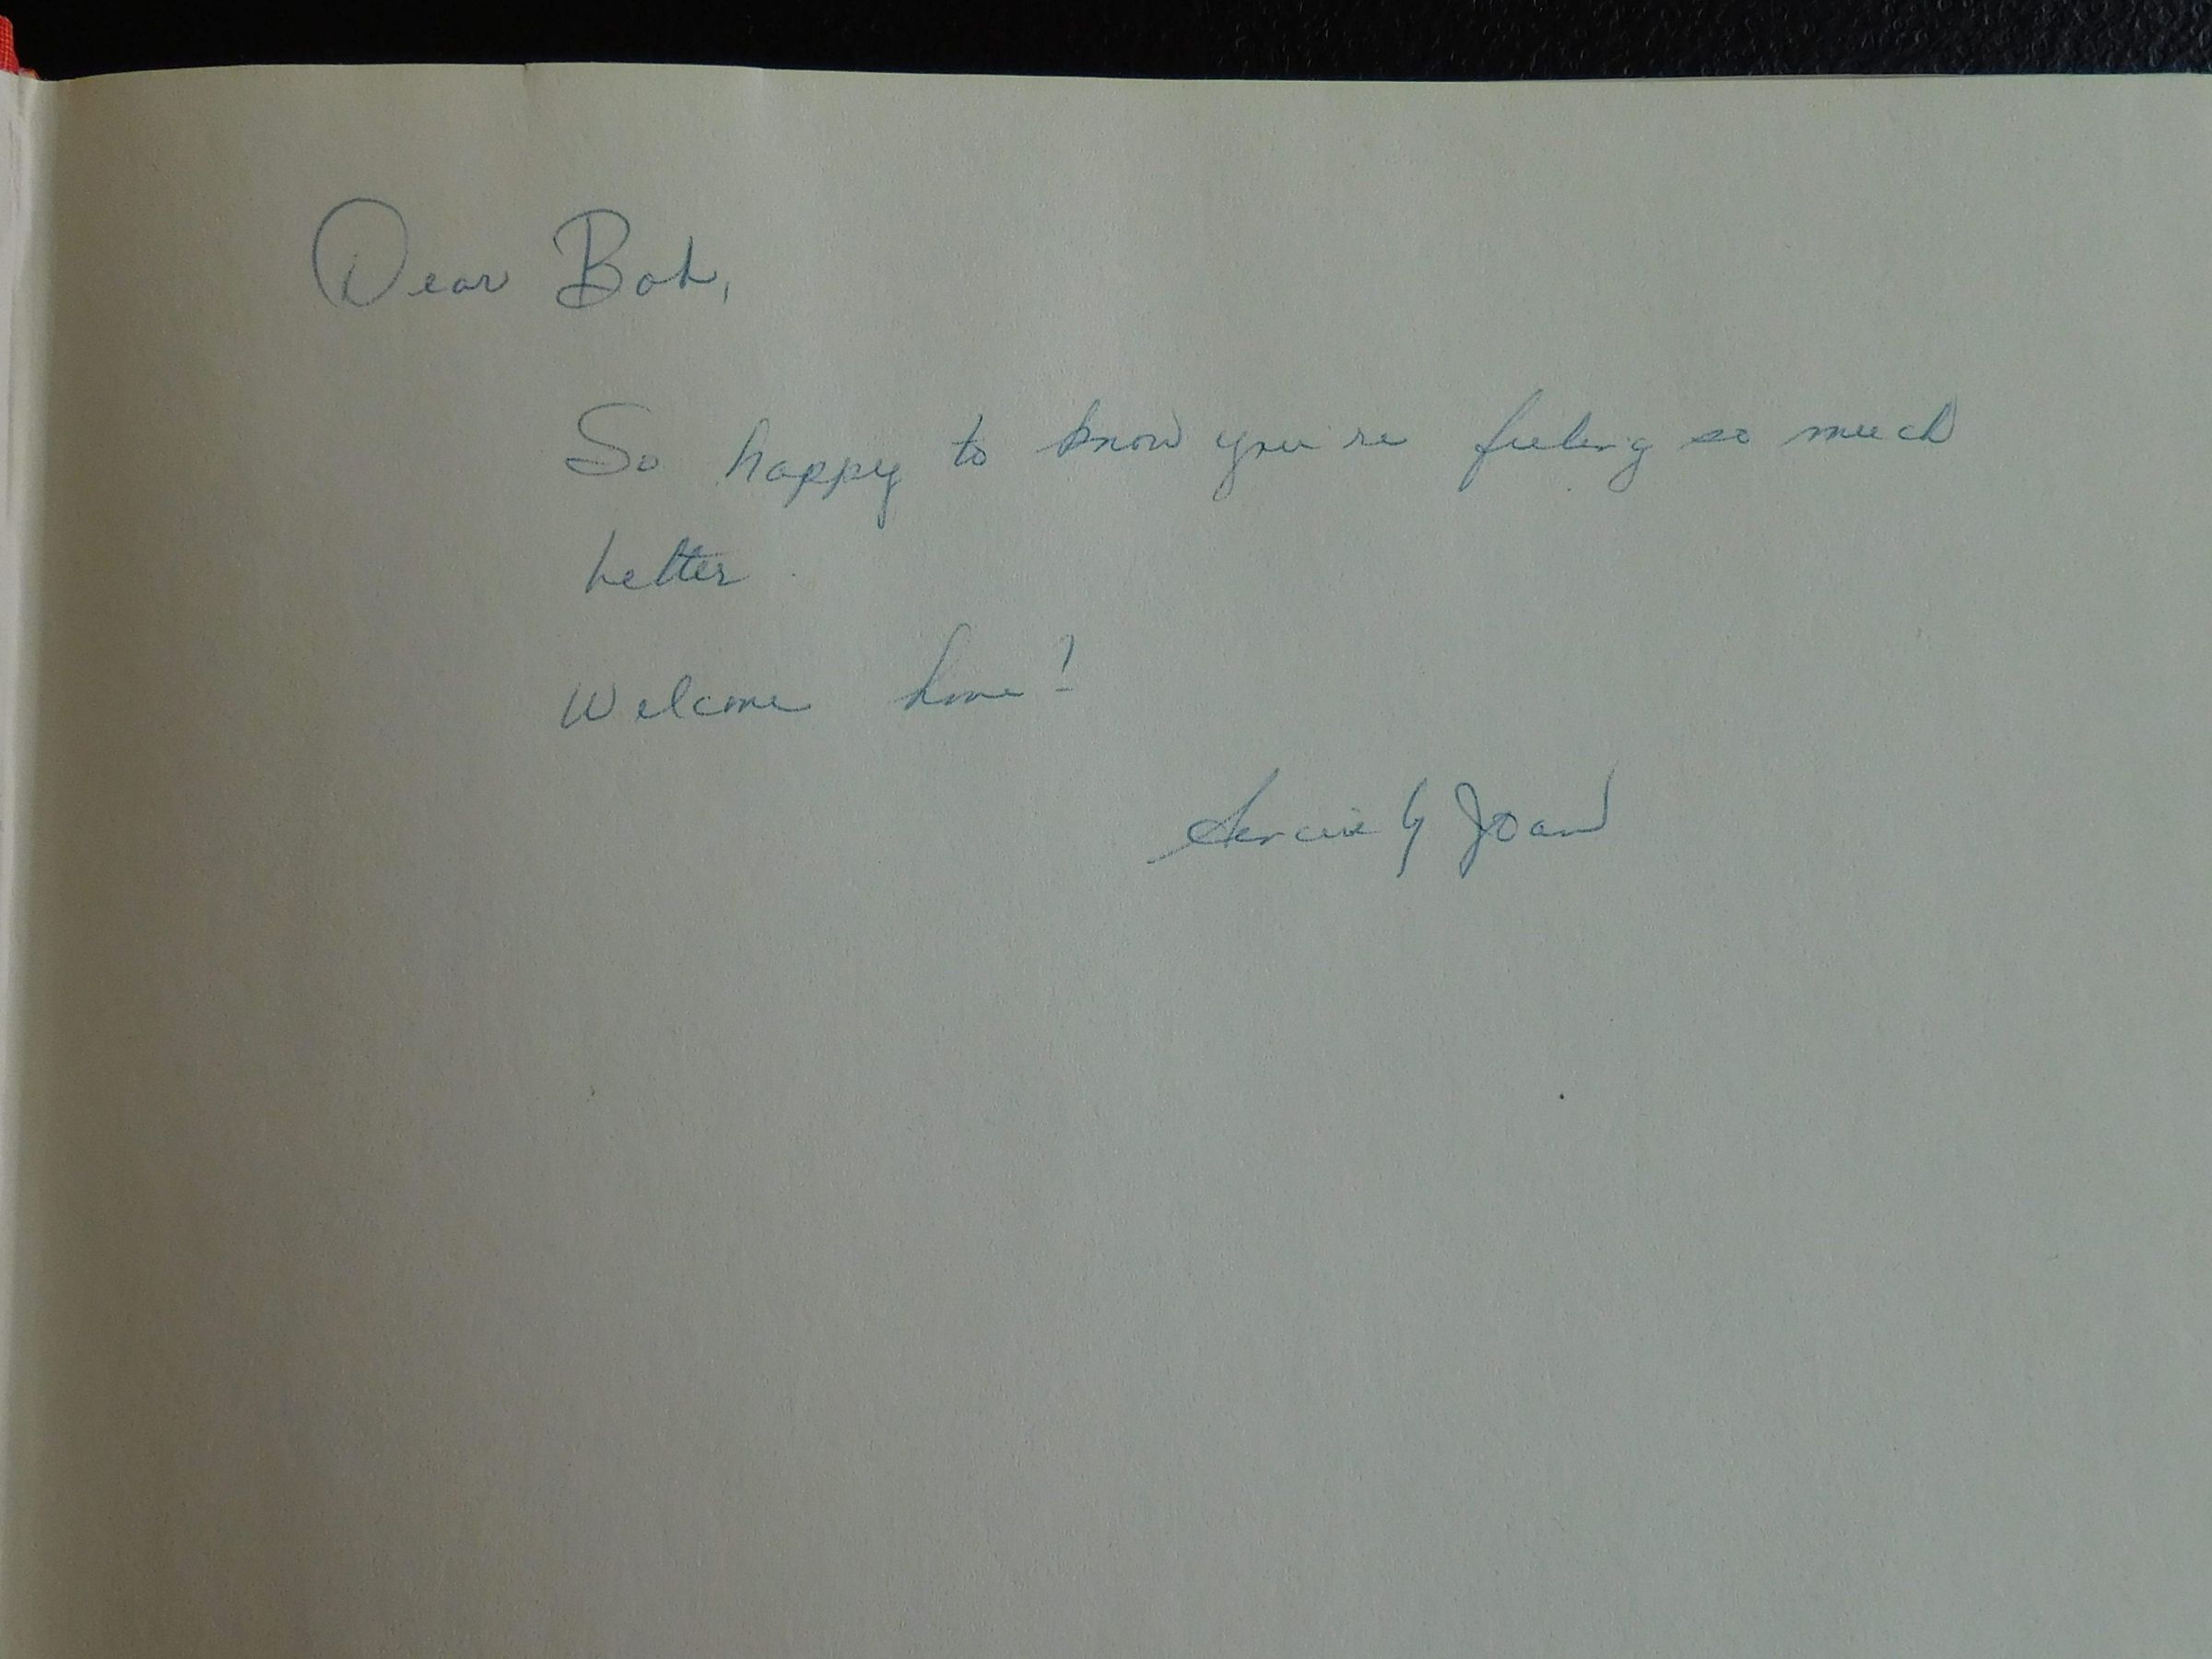 Dear Bob,
So happy to know you're feeling so much
better.
Welcome home!
Sincerely Joan